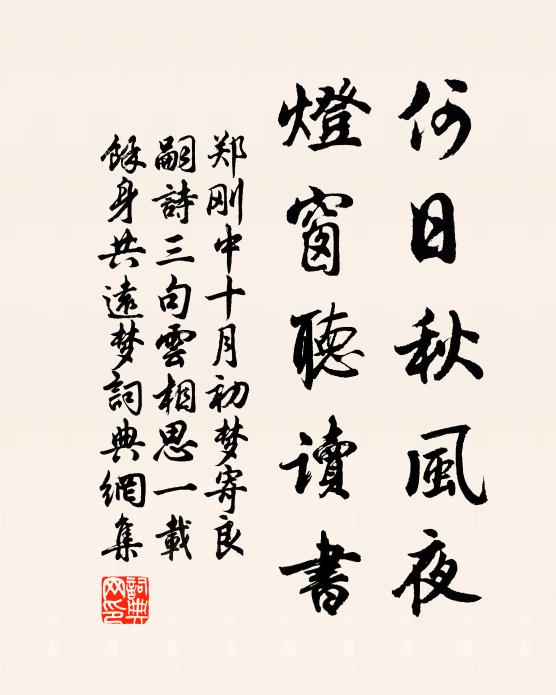 何日秋風夜
燈窗聽讀書
郑刚中十月初梦寄良
嗣詩三句雲相思一載
餘身共遠梦詞典網集
詞典
网印